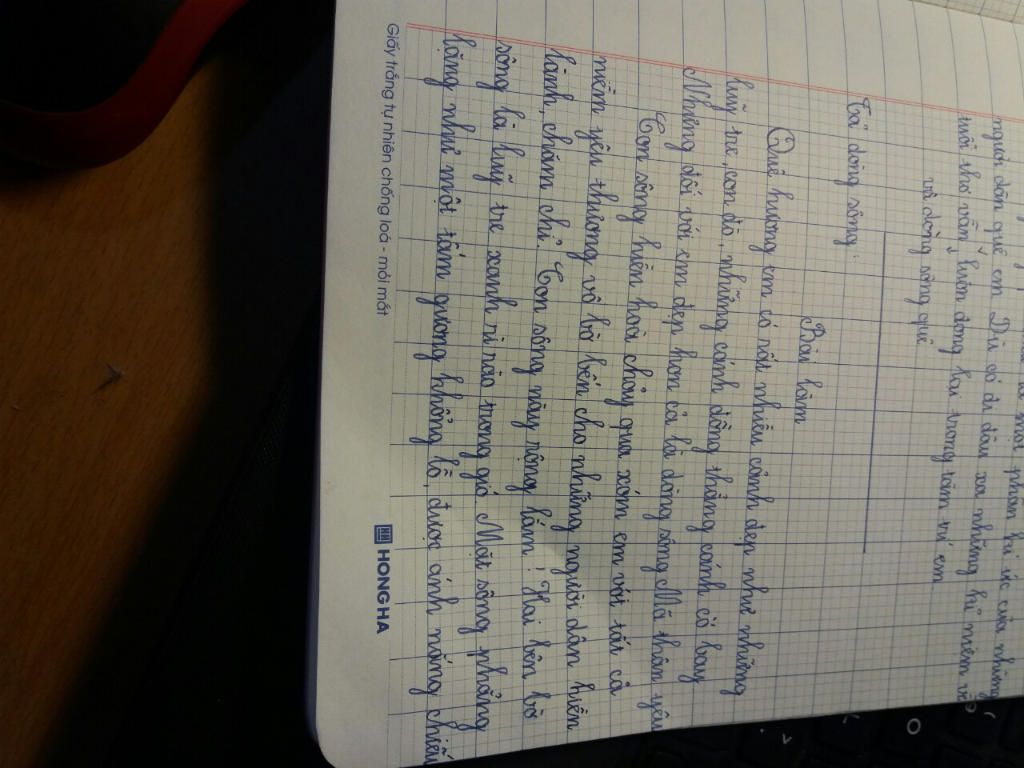 là một phần kí ức của những
người dân quê em. Dù có đi đâu xa những kỉ niệm về
tuổi thơ vẫn luôn đọng lại trong tâm trí em
và dòng sông quê.
Tả dòng sông.
Bài làm
Quê hương em có rất nhiều cảnh đẹp như những
luỹ tre, con đò, những cánh đồng thẳng cánh cò bay.
Nhưng đối với em đẹp hơn cả là dòng sông Mã thân yêu
Con sông hiền hoà chảy qua xóm em với tất cả
niềm yêu thương vô bờ bến cho những người dân hiền
lành, chăm chỉ. Con sông này rộng lắm! Hai bên bờ
sông là luỹ tre xanh rì rào trong gió. Mặt sông phẳng
lặng như một tấm gương khổng lồ, được ánh nắng chiếu
Giấy trắng tự nhiên chống loá - mỏi mắt
HONG HA